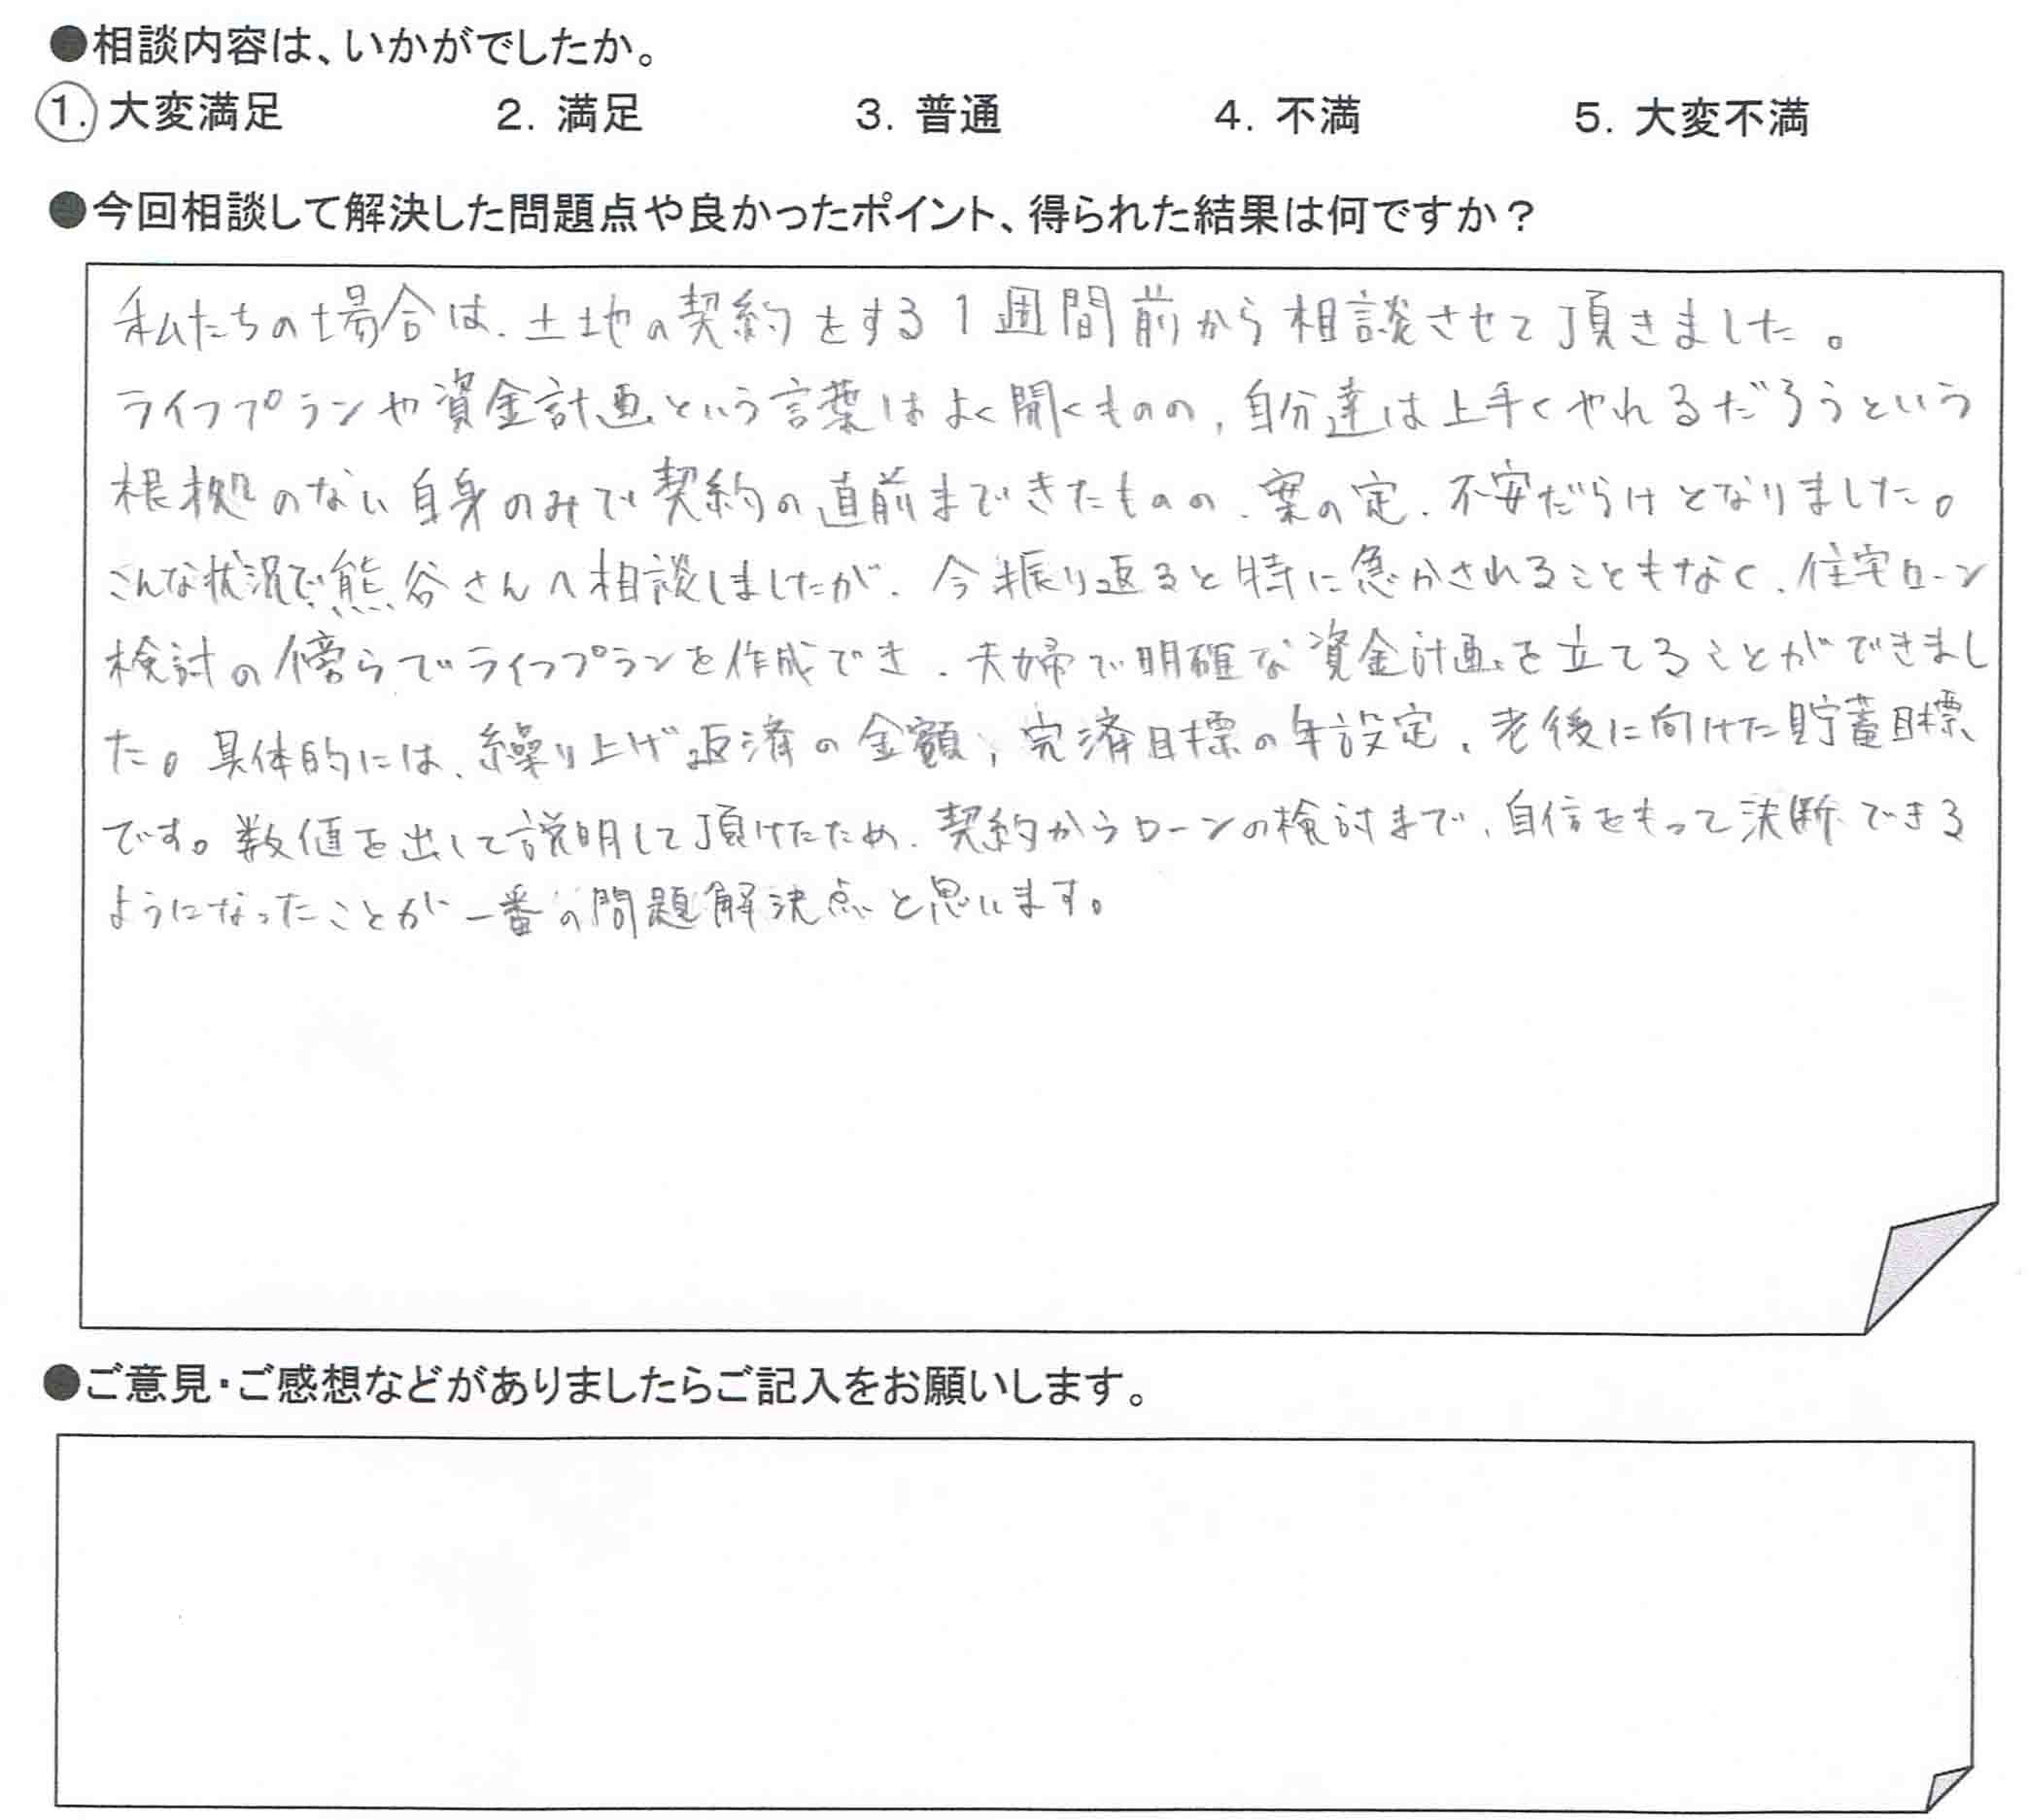 ●相談内容は、いかがでしたか。
1. 大変満足 2. 満足 3. 普通 4. 不満 5. 大変不満
●今回相談して解決した問題点や良かったポイント、得られた結果は何ですか？
私たちの場合は、土地の契約をする1週間前から相談させて頂きました。
ライフプランや資金計画という言葉はよく聞くものの、自分達は上手くやれるだろうという
根拠のない自身のみで契約の直前まできたものの、案の定、不安だらけとなりました。
こんな状況で熊谷さんへ相談しましたが、今振り返ると特に急かされることもなく、住宅ローン
検討の傍らでライフプランを作成でき、夫婦で明確な資金計画を立てることができまし
た。具体的には、繰り上げ返済の金額、完済目標の年設定、老後に向けた貯蓄目標
です。数値を出して説明して頂けたため、契約からローンの検討まで、自信をもって決断できる
ようになったことが一番の問題解決点と思います。
●ご意見・ご感想などがありましたらご記入をお願いします。